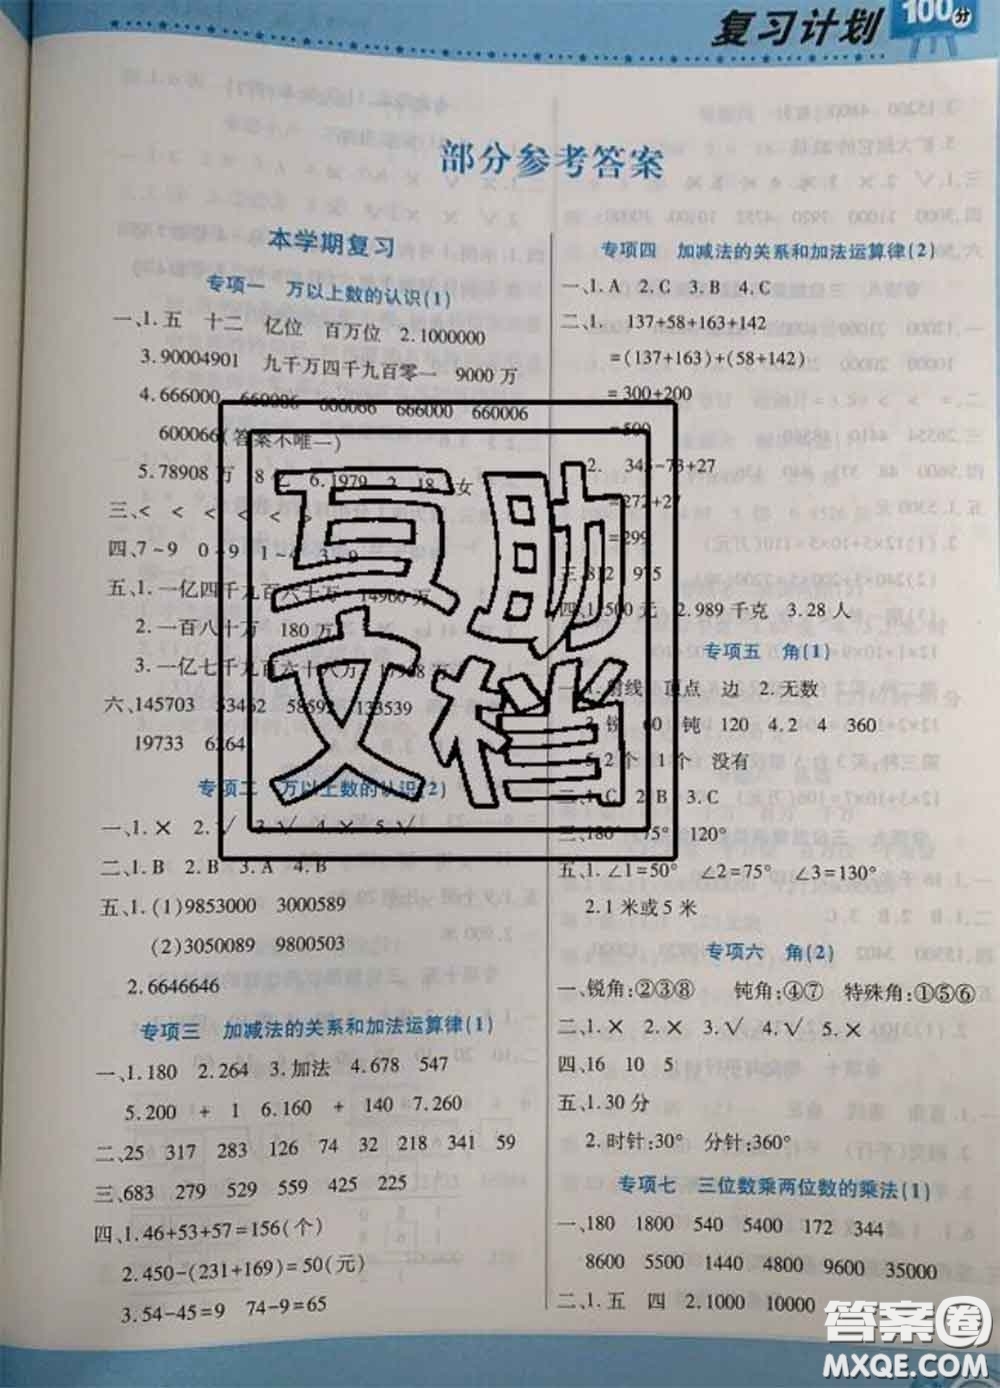 复习计划 100分
部分参考答案
本学期复习
专项一 万以上数的认识(1)
一、1.五 十二 亿位 百万位 2.1000000
3.90004901 九千万四千九百零一 9000万
4.666000 660006 600066 666000 660006
600066(答案不唯一)
5.78908万 8亿 6.1979 2 18 女
三、< < < < < >
四、7~9 0~9 1~4 3~9
五、1.一亿四千九百六十万 14960万
2.一百八十万 180万
3.一亿七千九百六十八万 17968
六、145703 53462 58592 133539
19733 6264
专项二 万以上数的认识(2)
一、1.× 2.√ 3.√ 4.× 5.√
二、1.B 2.B 3.A 4.B
五、1.(1)9853000 3000589
(2)3050089 9800503
2.6646646
专项三 加减法的关系和加法运算律(1)
一、1.180 2.264 3.加法 4.678 547
5.200 + 1 6.160 + 140 7.260
二、25 317 283 126 74 32 218 341 59
三、683 279 529 559 425 225
四、1.46+53+57=156(个)
2.450-(231+169)=50(元)
3.54-45=9 74-9=65
专项四 加减法的关系和加法运算律(2)
一、1.A 2.C 3.B 4.C
二、1. 137+58+163+142
=(137+163)+(58+142)
=300+200
=500
2. 345-73+27
=272+27
=299
三、812 975
四、1.500元 2.989千克 3.28人
专项五 角(1)
一、1.射线 顶点 边 2.无数
3.锐 60 钝 120 4.2 4 360
5.2个 1个 没有
二、1.C 2.B 3.C
三、180° 75° 120°
五、1.∠1=50° ∠2=75° ∠3=130°
2.1米或5米
专项六 角(2)
一、锐角:②③⑧ 钝角:④⑦ 特殊角:①⑤⑥
二、1.× 2.× 3.√ 4.√ 5.×
四、16 10 5
五、1.30分
2.时针:30° 分针:360°
专项七 三位数乘两位数的乘法(1)
一、180 1800 540 5400 172 344
8600 5500 1440 4800 9600 35000
二、1.五 四 2.1000 10000
互助
文档
答案圈
MXQE.COM